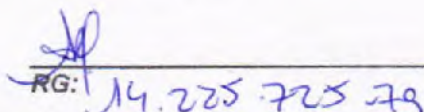 RG: 14.225.725.79